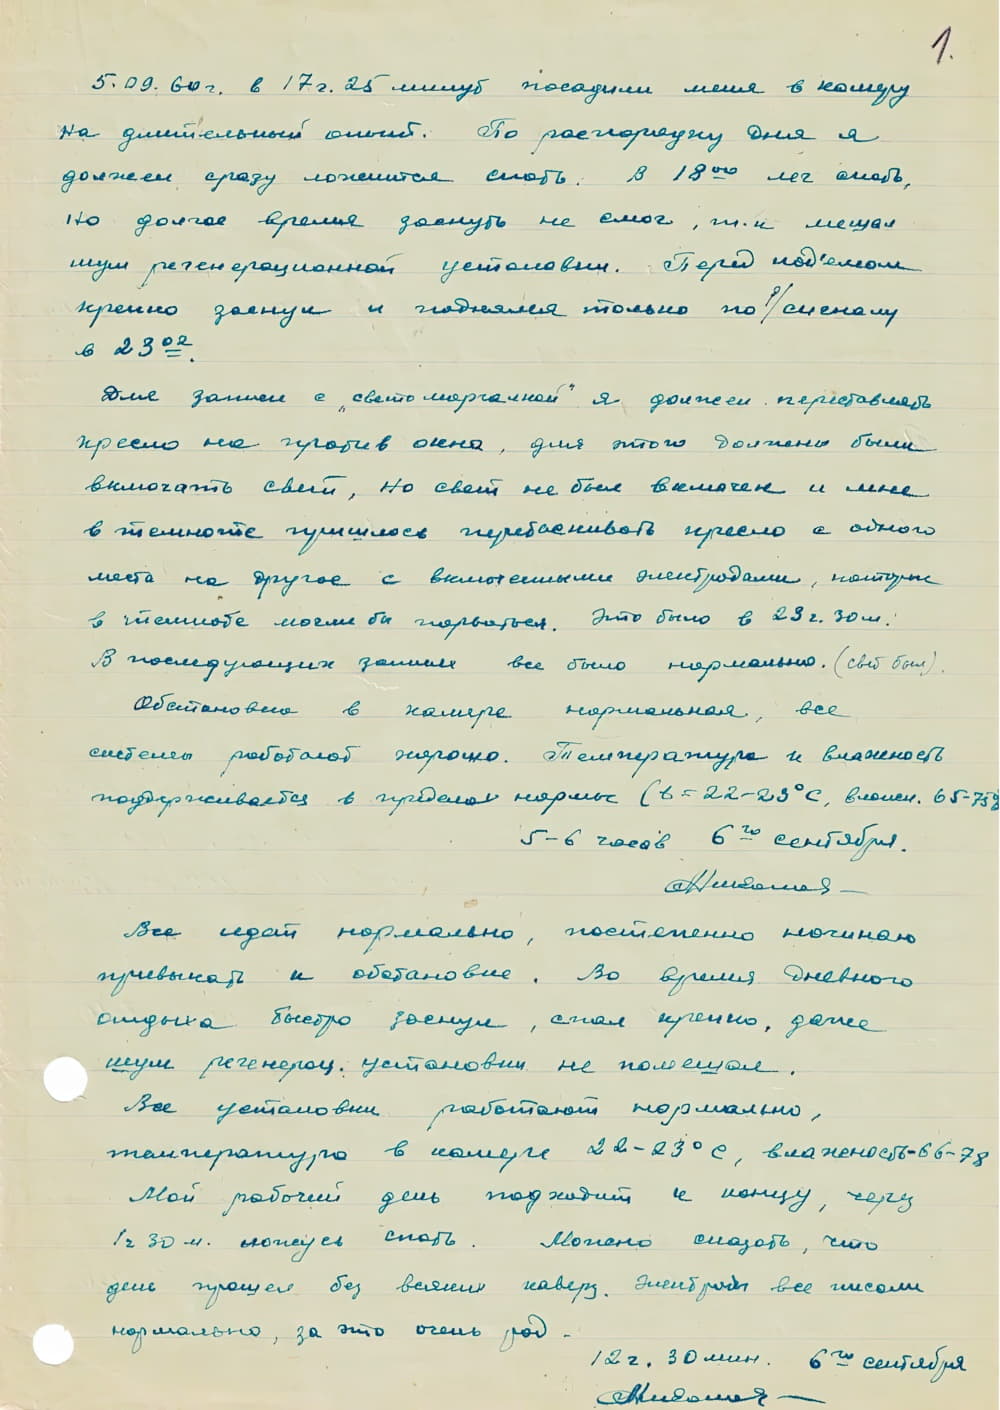 1.
5.09.60г. в 17г.25 минут посадили меня в камеру
на длительный опыт. По распорядку дня я
должен сразу ложится спать. В 18°° лег спать,
но долгое время заснуть не смог, т.к мешал
шум регенерационной установки. Перед под'емом
крепко заснул и поднялся только по сигналу
в 23
Для записи с „светоморгалкой" я должен переставлять
кресло на против окна, для этого должены были
включать свет, но свет не был включен и мне
в темноте пришлось перетаскивать кресло с одного
места на другое с включенными электродами, которые
в темноте могли бы порваться. Это было в 23г.30м.
В последующих записях все было нормально. (свет был).
Обстановка в камере нормальная, все
системы работают хорошо. Температура и влажность
поддерживается в пределах нормы (t=22-23°C, влажн. 65-75%
5-6 часов 6го сентября.
Все идет нормально, постепенно начинаю
привыкать к обстановке. Во время дневного
отдыха быстро заснул, спал крепко, даже
шум регенерац. установки не помешал.
Все установки работают нормально,
температура в камере 22-23°C, влажность-66-78
Мой рабочий день подходит к концу, через
1ч 30м. ложусь спать. Можно сказать, что
день прошел без всяких каверз. Электроды все писали
нормально, за это очень рад.
12г. 30мин. 6го сентября